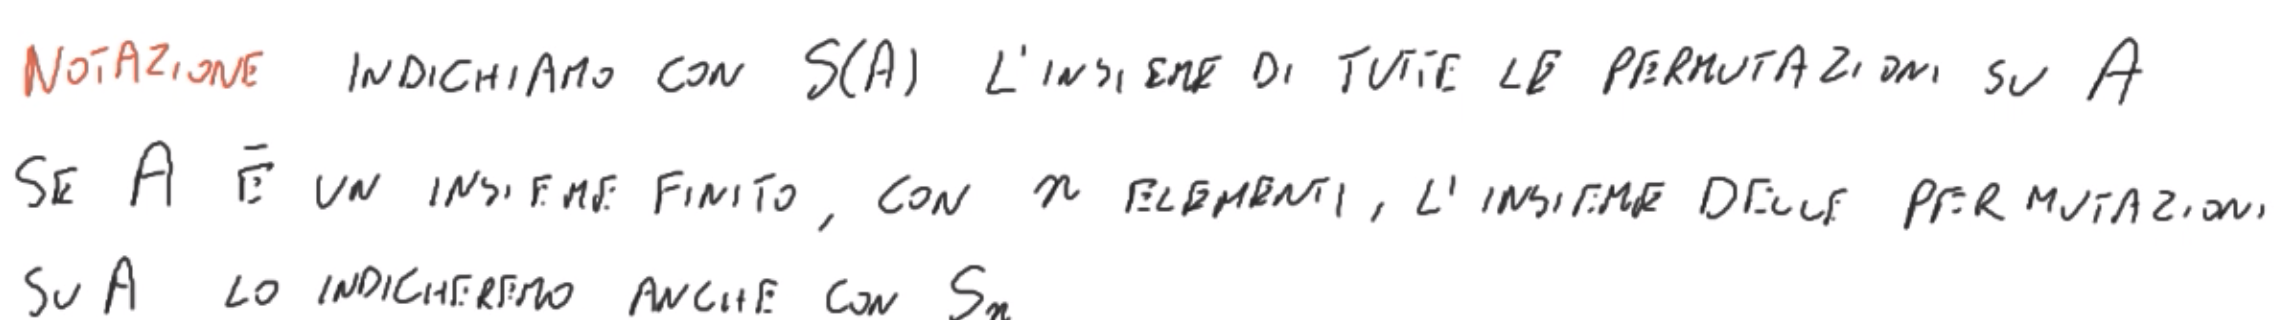 NOTAZIONE INDICHIAMO CON S(A) L'INSIEME DI TUTTE LE PERMUTAZIONI SU A
SE A È UN INSIEME FINITO, CON n ELEMENTI, L'INSIEME DELLE PERMUTAZIONI
SU A LO INDICHEREMO ANCHE CON Sn